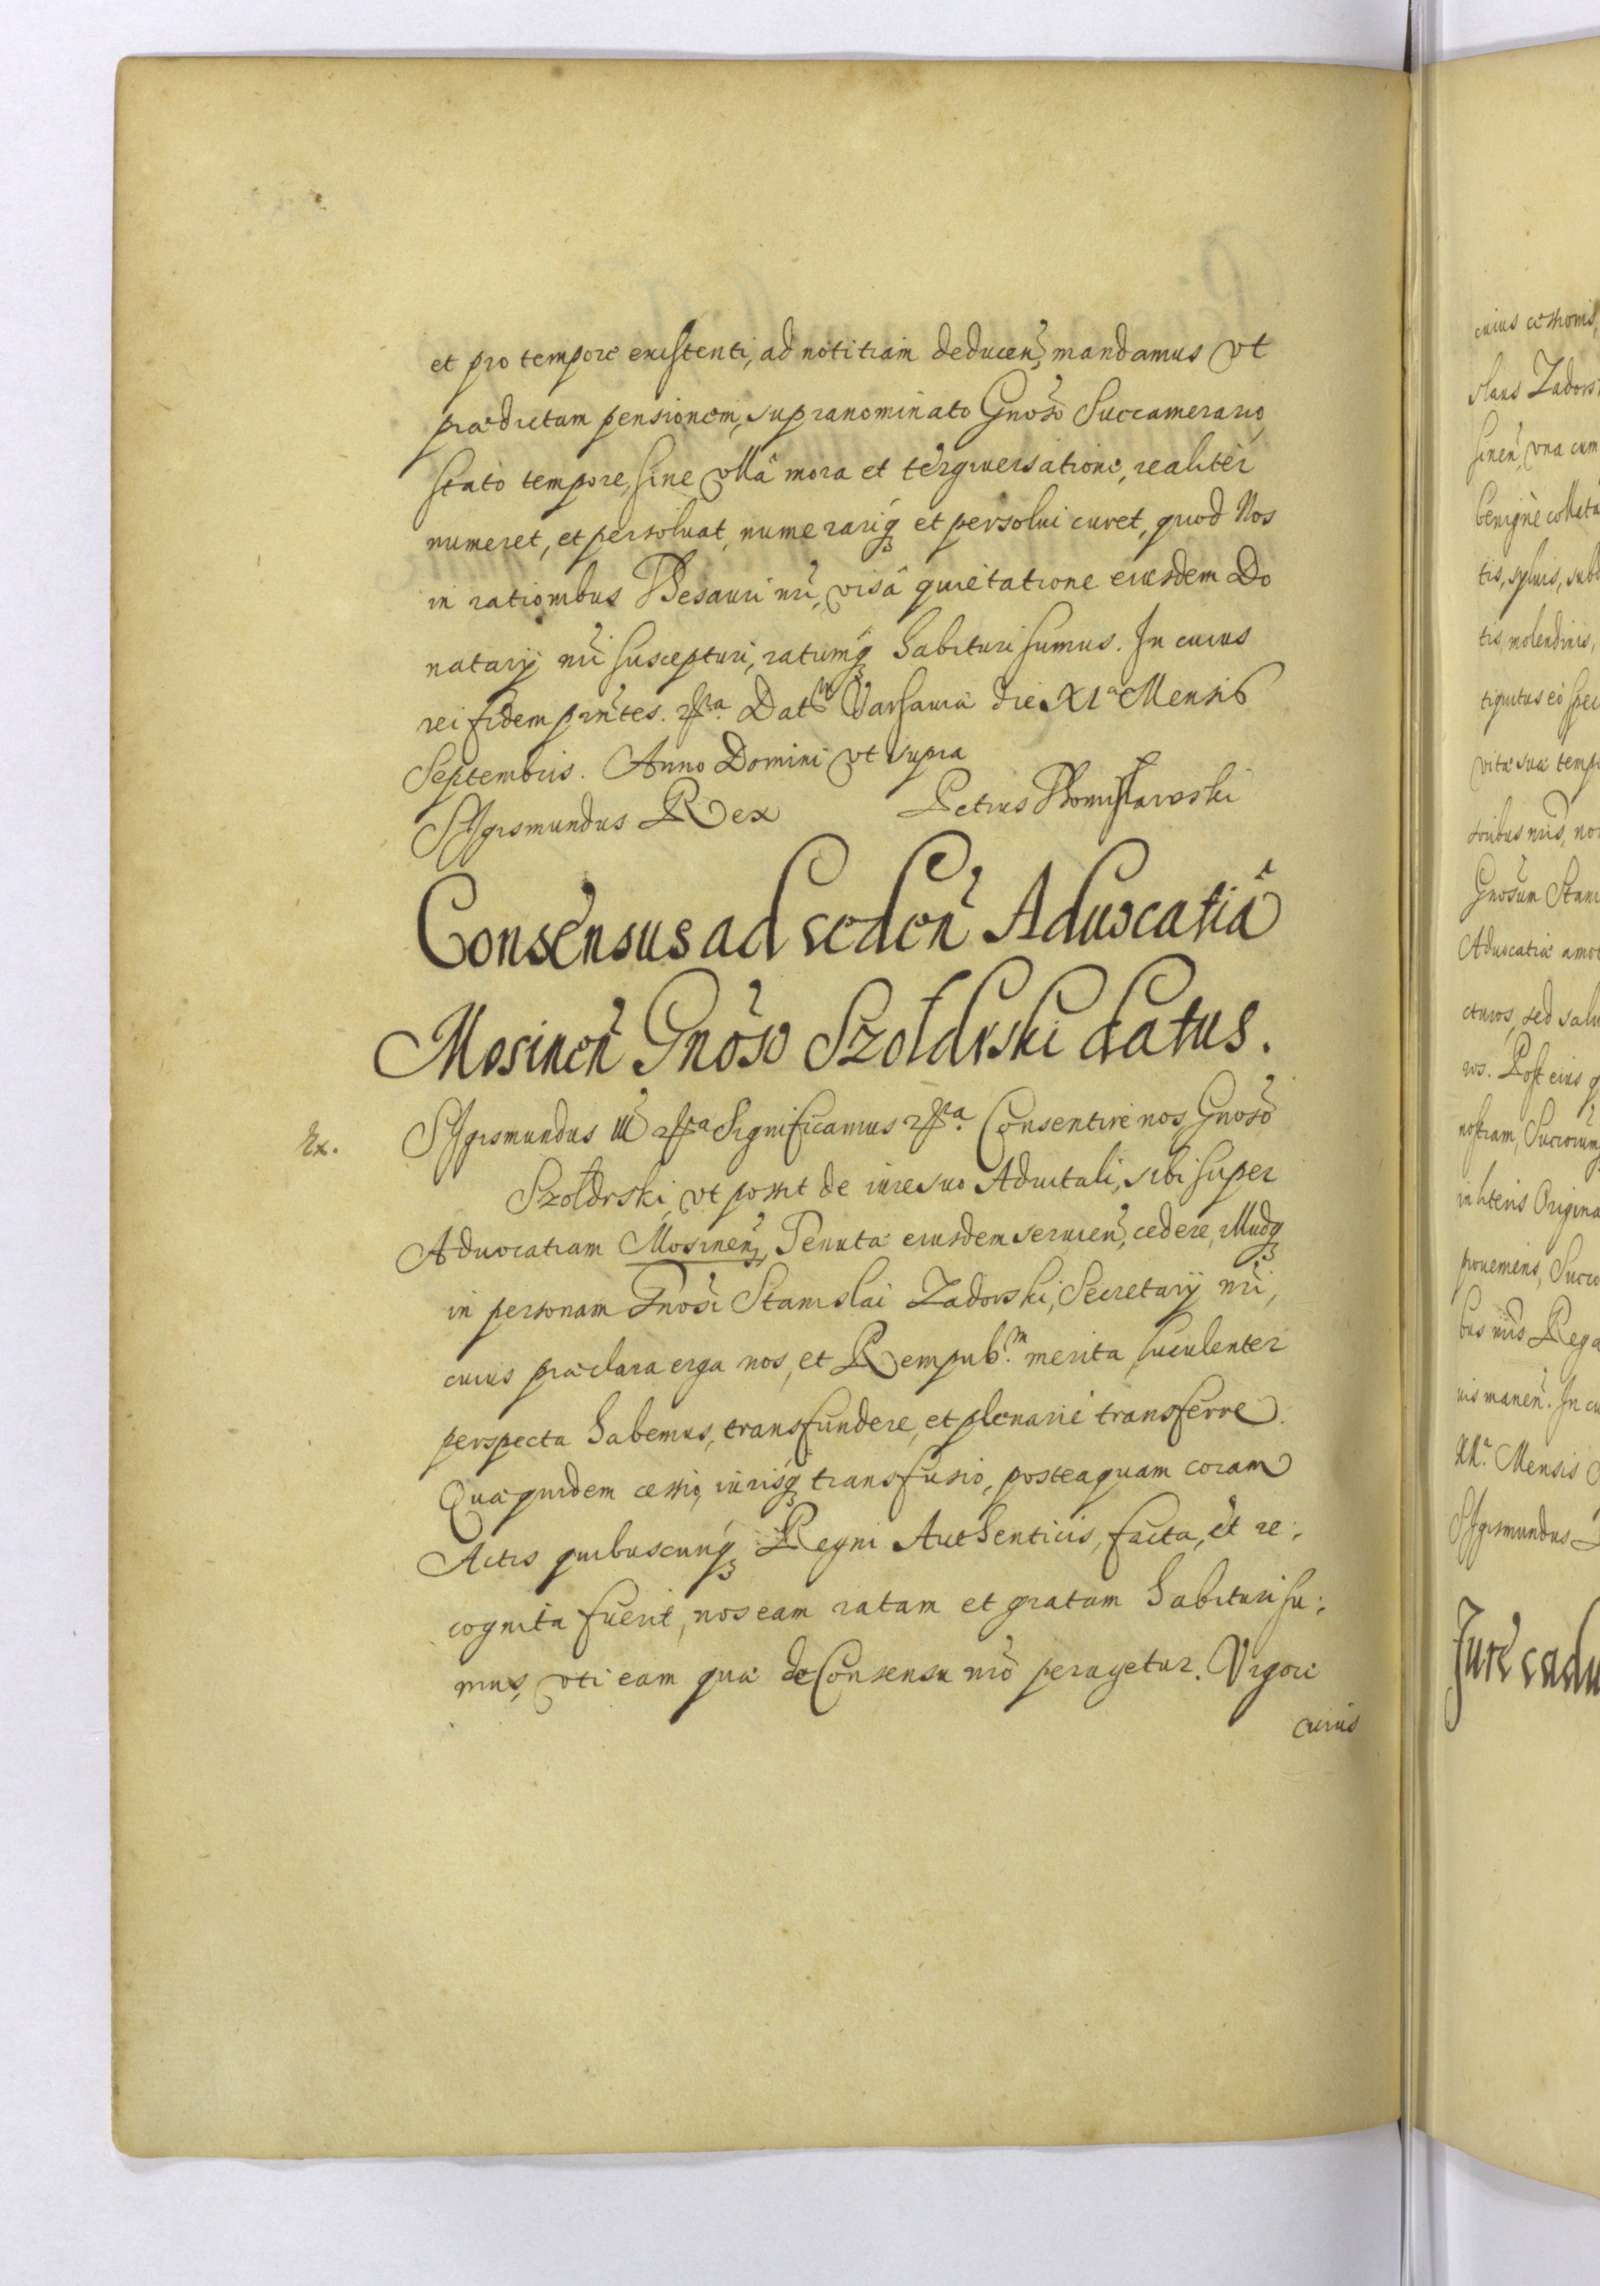 et pro tempore existenti, ad notitiam deducen̄, mandamus vt
prædictam pensionem, supranominato Gnoso Succamerario,
stato tempore, sine vllâ mora et tergiuersatione, realiter
numeret, et persoluat, numerariq; et persolui curet, quod Nos
in rationibus Thesauri nri, visâ quietatione eiusdem Do
natarij nri suscepturi, ratumq; habituri sumus. In cuius
rei fidem pntes. Dat Varsauiæ die XIa Mensis
Septembris. Anno Domini vt supra
Sigismundus Rex Petrus
Consensus ad cedēn Aduocatiâ
Mosinēn Gnoso Szołdrski datus.
Rx. Sigismundus III Significamus Consentire nos Gnoso
Szołdrski, vt possit de iure suo Aduitali, sibi super
Aduocatiam Mosinen̄, Tenutæ eiusdem seruien̄, cedere, illudq;
in personam Gnosi Stanislai Zadorski, Secretarij nri,
cuius præclara erga nos, et Rempub.m merita, luculenter
perspecta habemus, transfundere, et plenarie transferre.
Quæ quidem cessio, iurisq; transfusio, posteaquam coram
Actis quibuscunq; Regni Authenticis, facta, et re:
cognita fuerit, nos eam ratam et gratam habituri su:
mus, vti eam quæ de Consensu nro peragetur. Vigore
cuius
cuius cessionis,
slaus Zadors
sinen̄, vna cum
benignè collatâ
tis, syluis, sub
tis, molendinis,
vitæ suæ temp
Gnosum Stani
Aduocatiæ amo
cturos, sed salu
ros. Post eius
nostram, Succ
in literis Origina
bus nris Rega
uis manen̄. In cu
Mensis
Sigismundus
Jure cadu